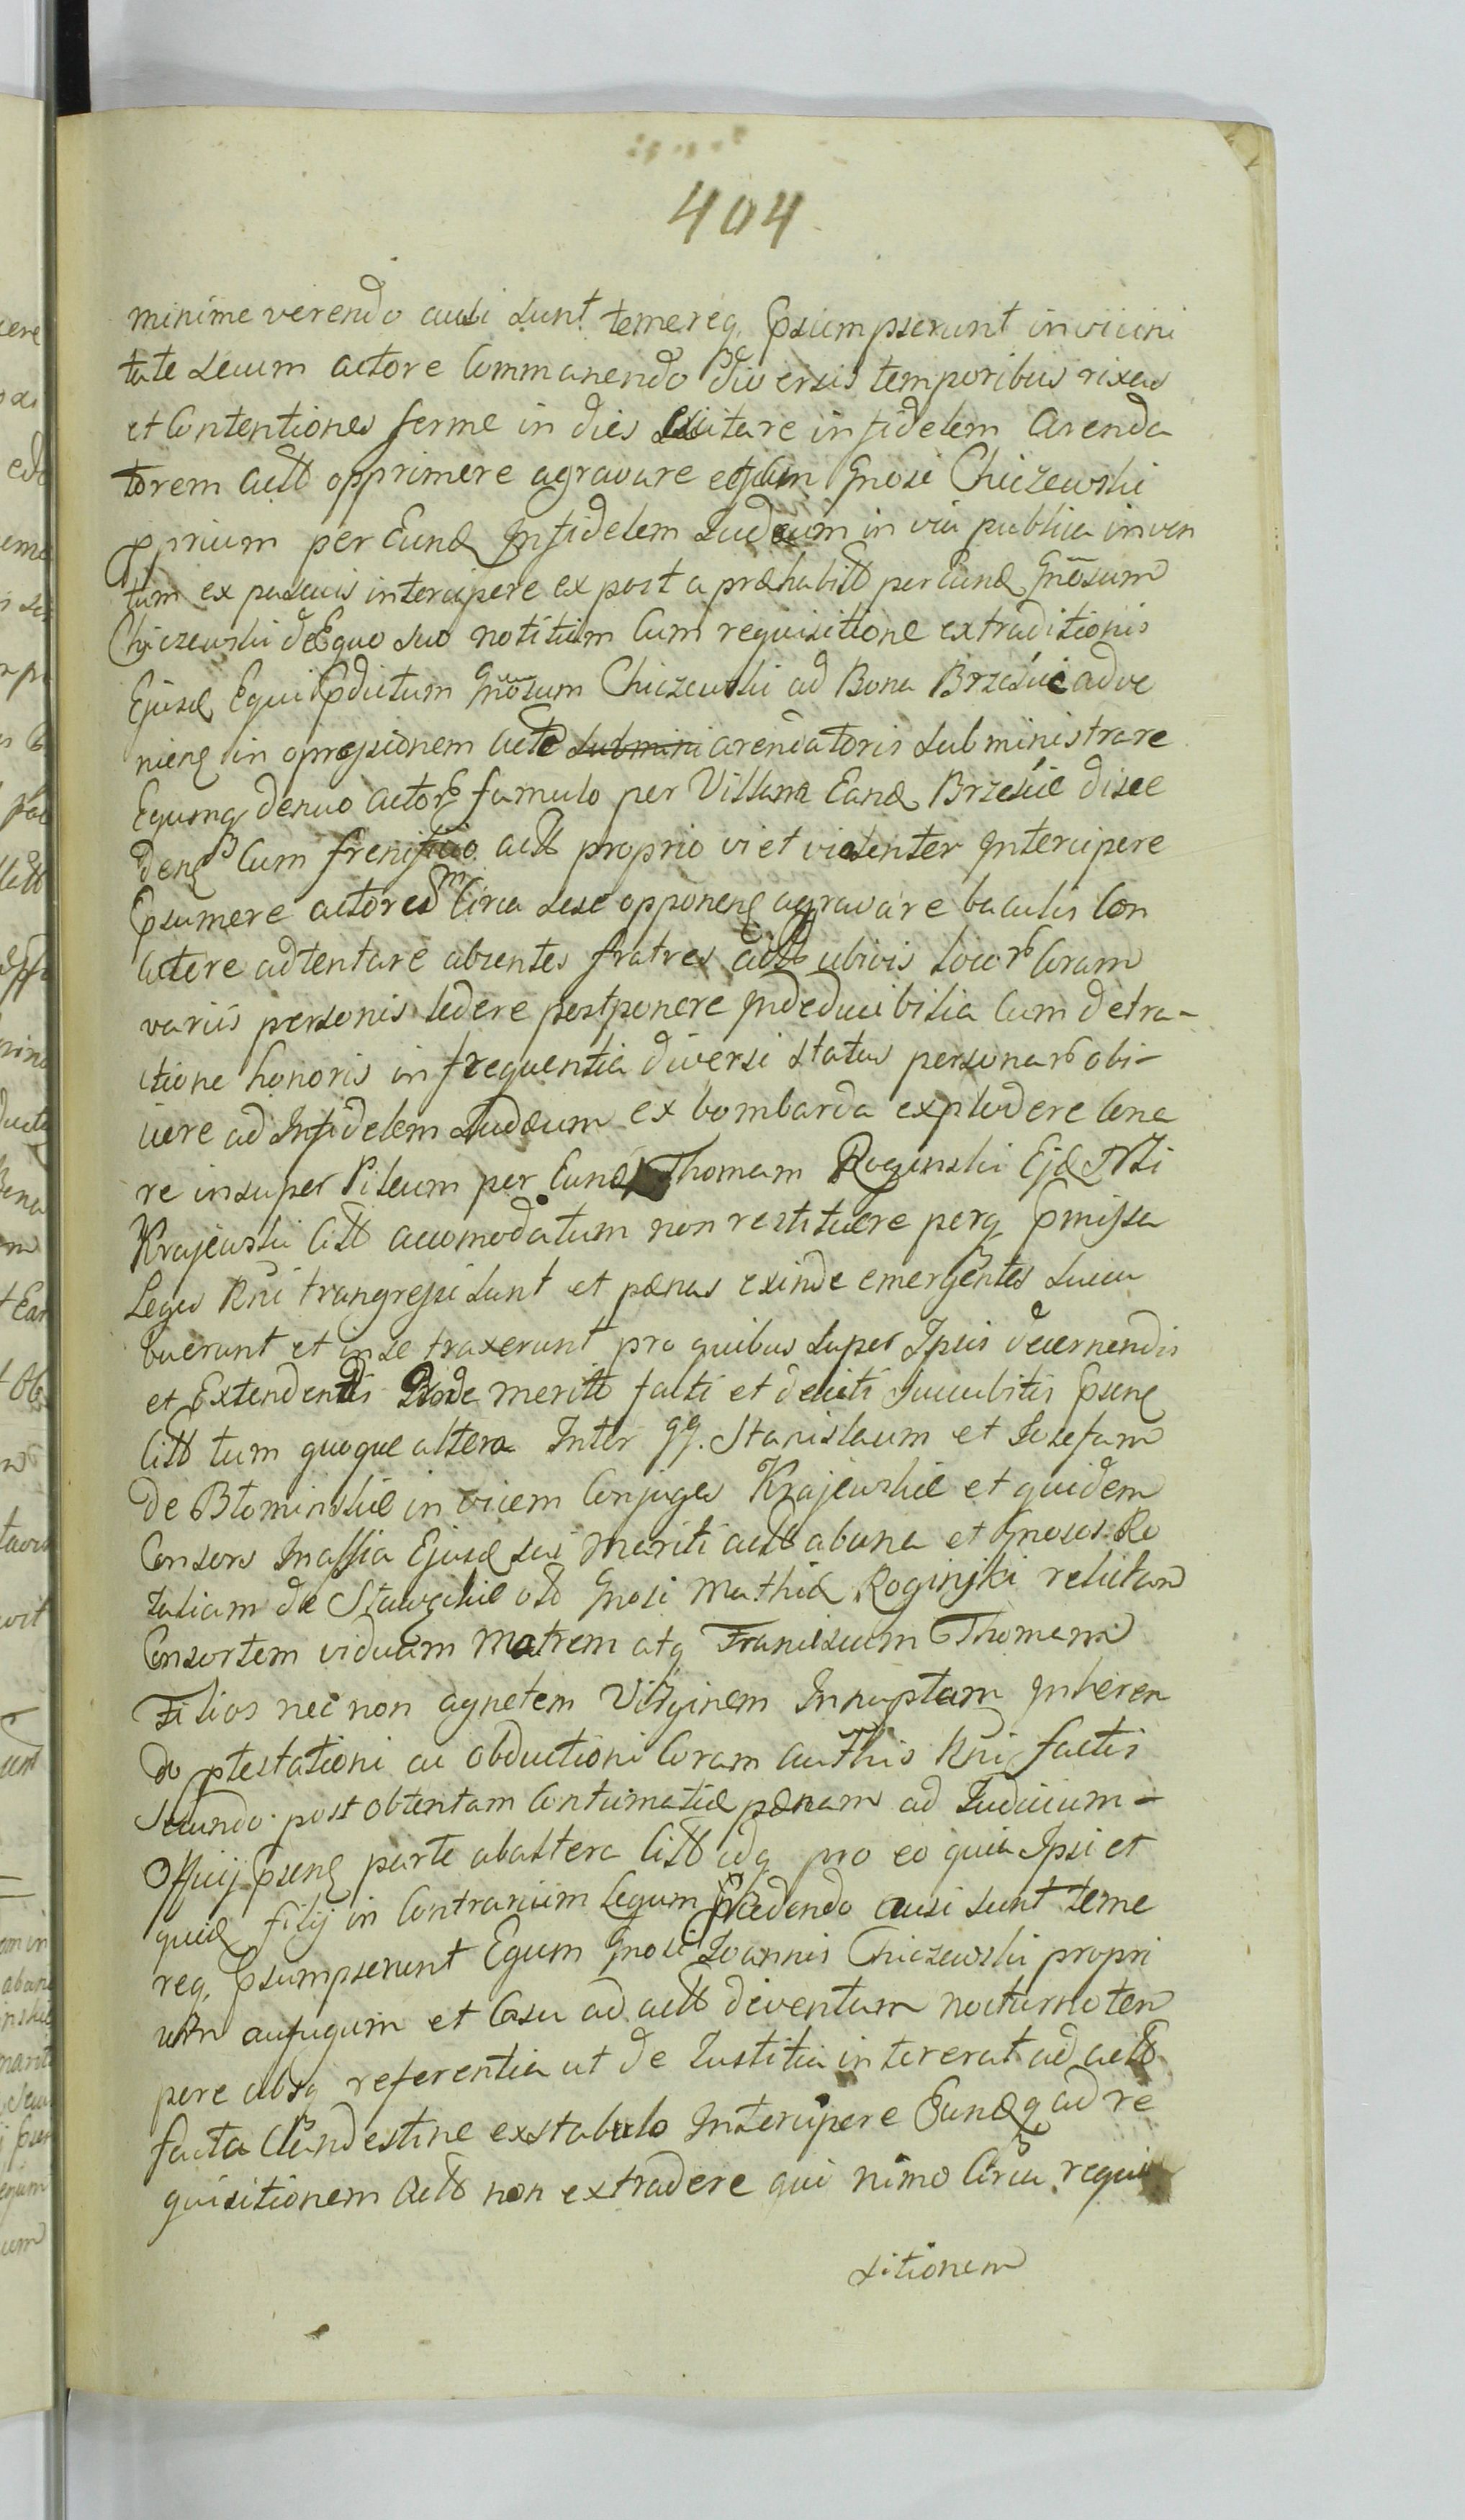 404
minime verendo ausi sunt temereq. Psumpserunt in vicini
tate secum actore Commanendo diversis temporibus rixas
et Contentiones ferme in dies excitare infidelem Arenda
torem actt opprimere agravare eqtum Gnosi Chiczewski
pprium per Eund Infidelem Judæum in via publica inven
tum ex pascuis intercipere ex post a præhabitt per Eund Gnōsum
Chiczewski de Equo suo notitiam Cum requisitione extraditionis
Ejusd Equi Pdictum Gnōsum Chiczewski ad Bona Brzeście adve
nieng in opressionem actt submini arendatoris subministrare
Equmq denuo actore famulo per Villam Eand Brzeście disce
deng Cum frenisticio actt proprio vi et violenter Intercipere
Psumere actores Circa sese opponeng agravare baculis Con
cutere adtentare absentes fratres actt ubivis locor Coram
variis personis ledere postponere Indeducibilia Cum detra-
ctione honoris in frequentia diversi status personar obi-
icere ad Infidelem Judæum ex bombarda explodere Cona
re insuper Pileum per Eund Thomam Roginski Ejd
Krajewski Citt accomodatum non restituere perq pmissa
Leges Rni trangressi sunt et pænas exinde emergentes succu
buerunt et in se traxerunt pro quibus super Ipsis decernendis
et Extendendis meritt facti et delicti succubitis Pseng
Citt tum quoque altera Inter GG. Stanislaum et Josefam
de Błominskie invicem Conjuges Krajewskie et quidem
Consors Inassia Ejusd sui Mariti actt abuna et Gnosos Ro
saliam de Stawskie ott Gnosi Mathiæ Roginski relictam
Consortem viduam Matrem atq Franciscum Thomam
Filios nec non Agnetem Virginem Innuptam Inheren
do ptestationi ac obductioni Coram Acthis Rni factis
Secundo post obtentam Contumatiæ pænam ad Judicium-
Officij Pseng parte ab altera Citt idq pro eo quia Ipsi et
quid filij in Contrarium Legum procedendo ausi sunt teme
req. Psumpserunt Equm Gnosi Joannis Chiczewski propri
um aufugum et Casu ad actt deventum nocturno tem
pore absq referentia ut de Justitia intererat ad actt
facta Clandestine ex stabulo Intercipere Eundq ad re
quisitionem actt non extradere qui nimo Circa requi
sitionem